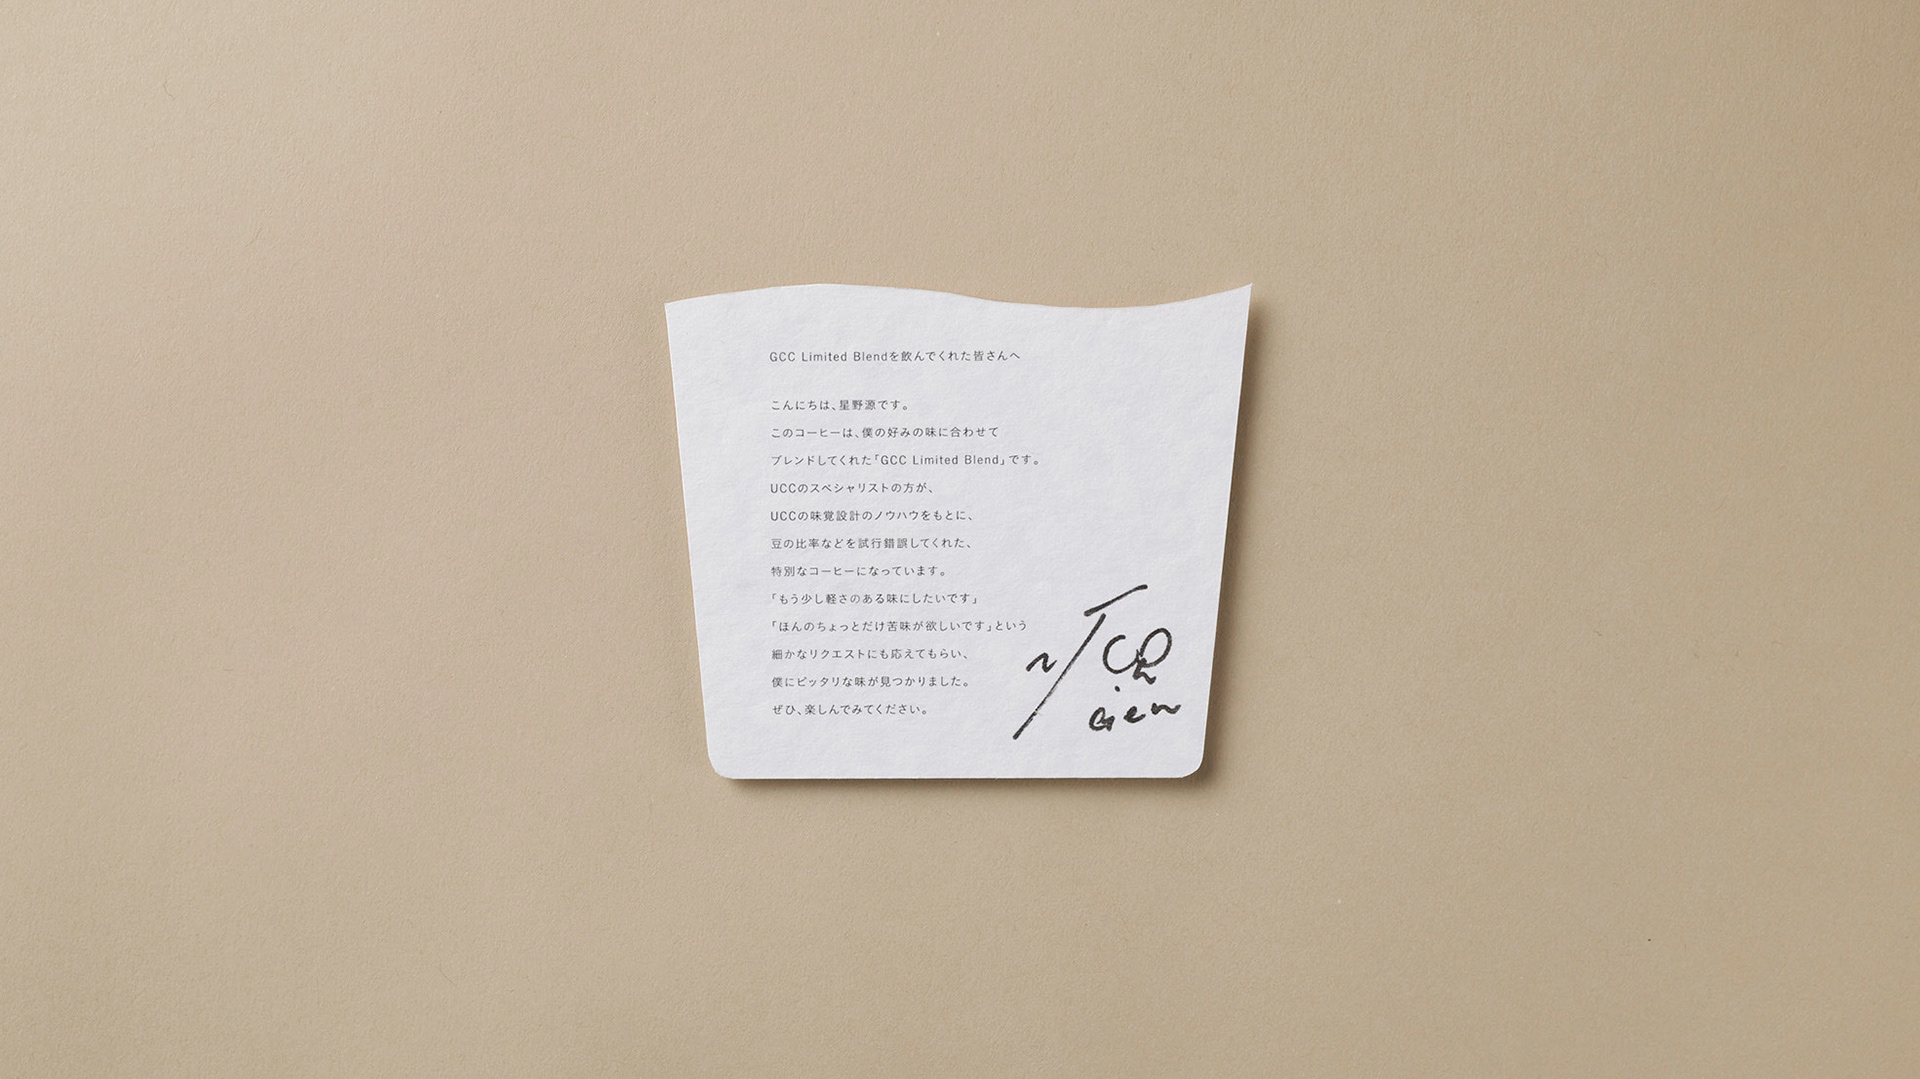 GCC Limited Blendを飲んでくれた皆さんへ
こんにちは、星野源です。
このコーヒーは、僕の好みの味に合わせて
ブレンドしてくれた「GCC Limited Blend」です。
UCCのスペシャリストの方が、
UCCの味覚設計のノウハウをもとに、
豆の比率などを試行錯誤してくれた、
特別なコーヒーになっています。
「もう少し軽さのある味にしたいです」
「ほんのちょっとだけ苦味が欲しいです」という
細かなリクエストにも応えてもらい、
僕にピッタリな味が見つかりました。
ぜひ、楽しんでみてください。